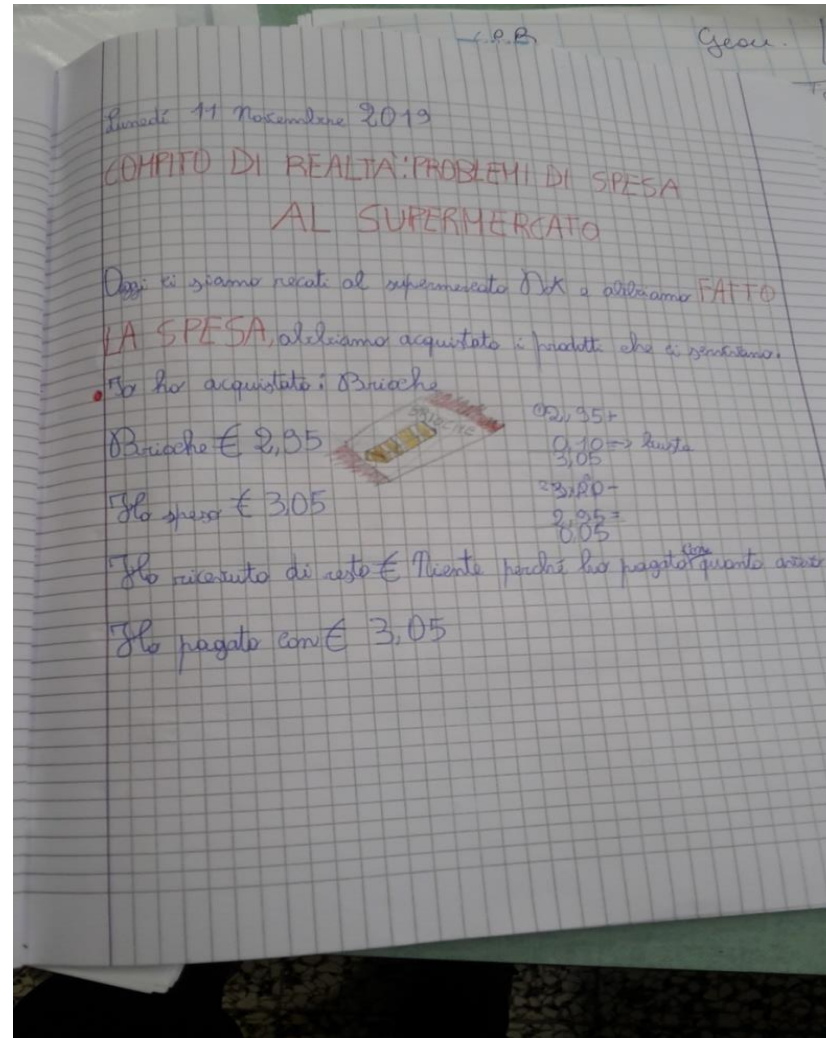 Geom.
Lunedì 11 Novembre 2019
COMPITO DI REALTÀ: PROBLEMI DI SPESA
AL SUPERMERCATO
Oggi ci siamo recati al supermercato e abbiamo FATTO
LA SPESA, abbiamo acquistato i prodotti che ci servivano.
Io ho acquistato: Brioche
BRIOCHE
Brioche € 2,95
2,95+
0,10=> busta
3,05
Ho speso € 3,05
2,95=
0,05
Ho ricevuto di resto € Niente perché ho pagato quanto
Ho pagato con € 3,05